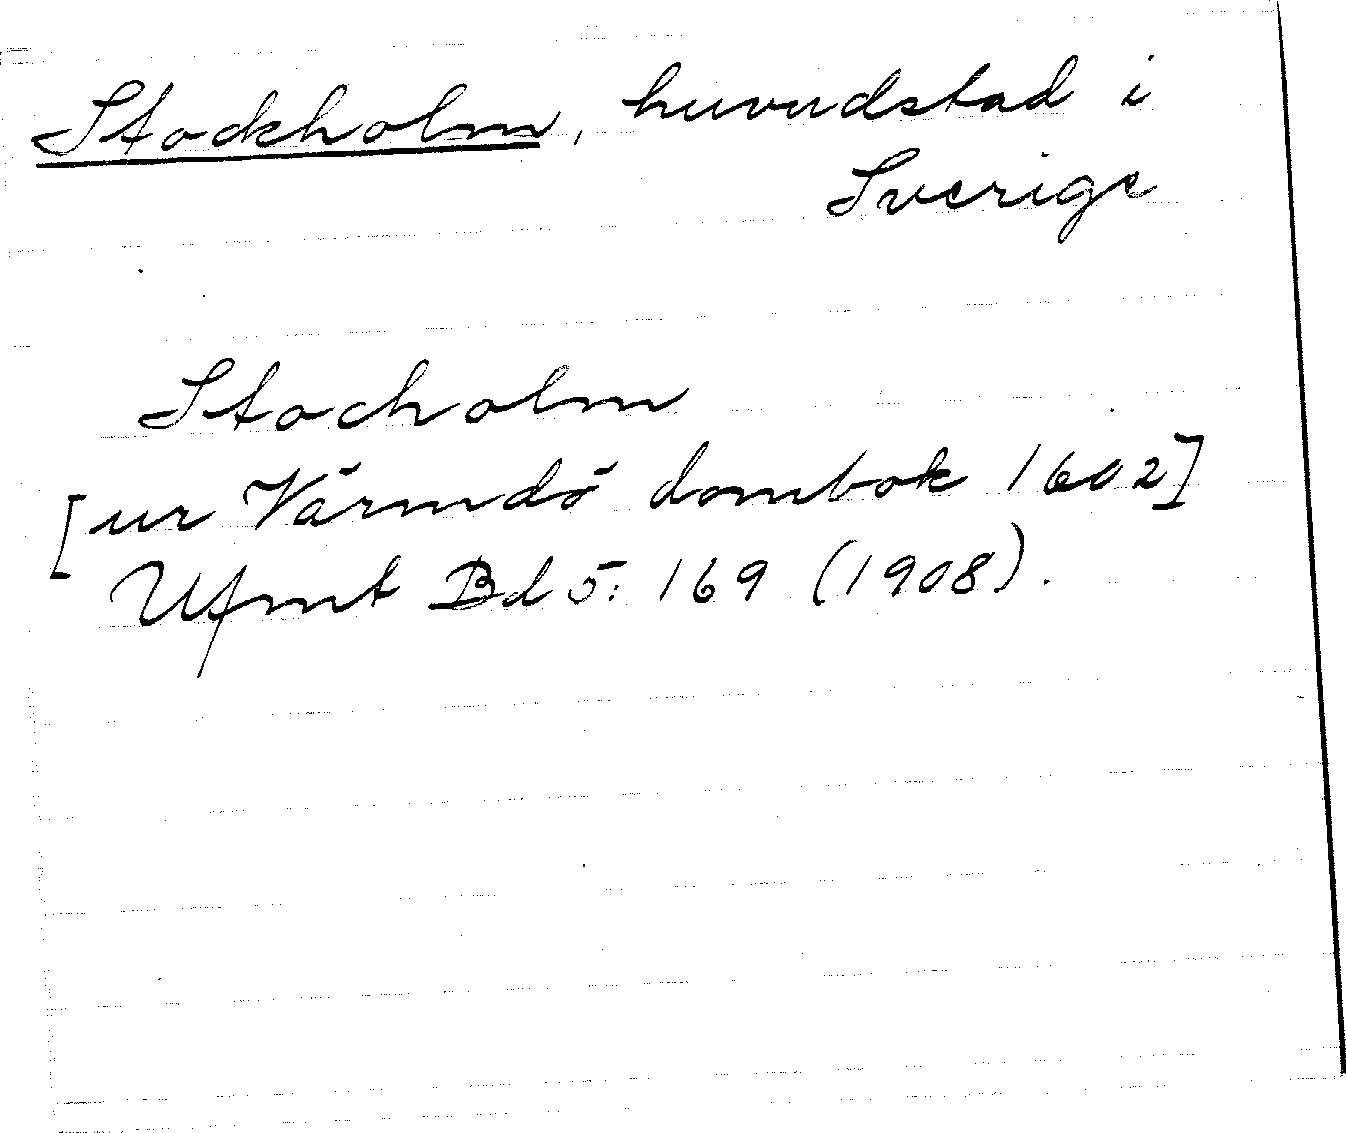 Stockholm, huvudstad i
Sverige
Stocholm
[ur Värmdö dombok 1602]
Ufmt Bd 5: 169 (1908).